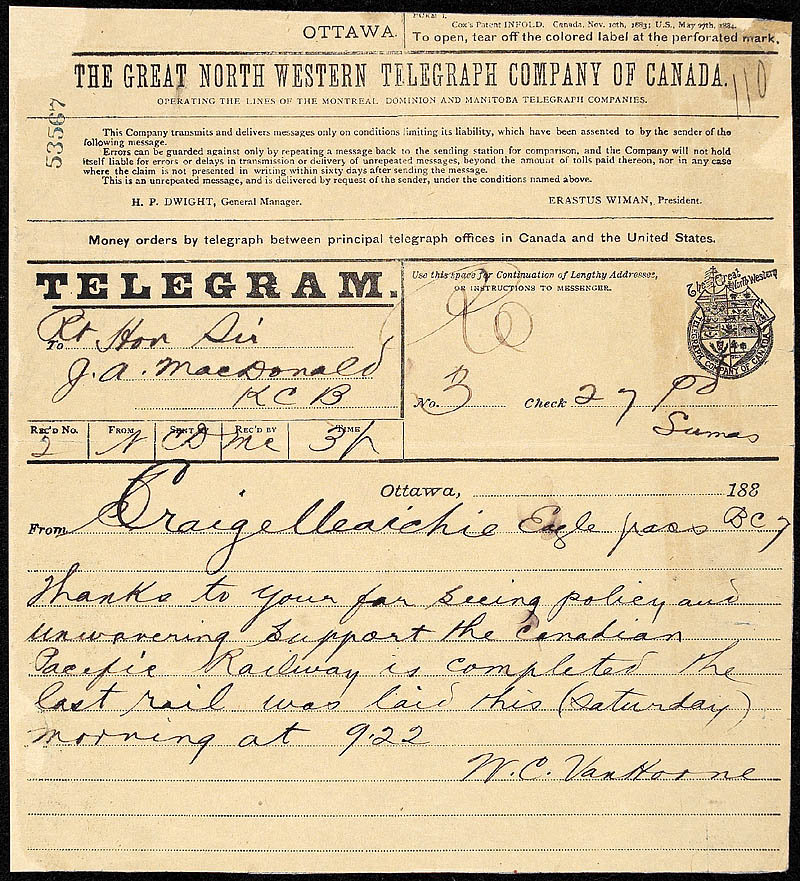 FORM 1.
OTTAWA.
Cox's Patent INFOLD. Canada, Nov. 10th, 1883; U.S., May 27th, 1884.
To open, tear off the colored label at the perforated mark.
THE GREAT NORTH WESTERN TELEGRAPH COMPANY OF CANADA.
110
OPERATING THE LINES OF THE MONTREAL DOMINION AND MANITOBA TELEGRAPH COMPANIES.
53567
This Company transmits and delivers messages only on conditions limiting its liability, which have been assented to by the sender of the
following message.
Errors can be guarded against only by repeating a message back to the sending station for comparison, and the Company will not hold
itself liable for errors or delays in transmission or delivery of unrepeated messages, beyond the amount of tolls paid thereon, nor in any case
where the claim is not presented in writing within sixty days after sending the message.
This is an unrepeated message, and is delivered by request of the sender, under the conditions named above.
H. P. DWIGHT, General Manager.
ERASTUS WIMAN, President.
Money orders by telegraph between principal telegraph offices in Canada and the United States.
TELEGRAM.
Use this space for Continuation of Lengthy Addresses,
OR INSTRUCTIONS TO MESSENGER.
The Great North Western
TELEGRAPH COMPANY OF CANADA
To Rt Hon Sir
J. A. MacDonald
K C B
No. 3 Check 27 Pd
Sumas
REC'D No. FROM SENT BY REC'D BY TIME
2 N CD Mc
Ottawa, 188
From Craigelleaichie Eagle pass BC 7
Thanks to your far seeing policy and
unwavering support the Canadian
Pacific Railway is completed the
last rail was laid this (Saturday)
morning at 9.22
W. C. Van Horne